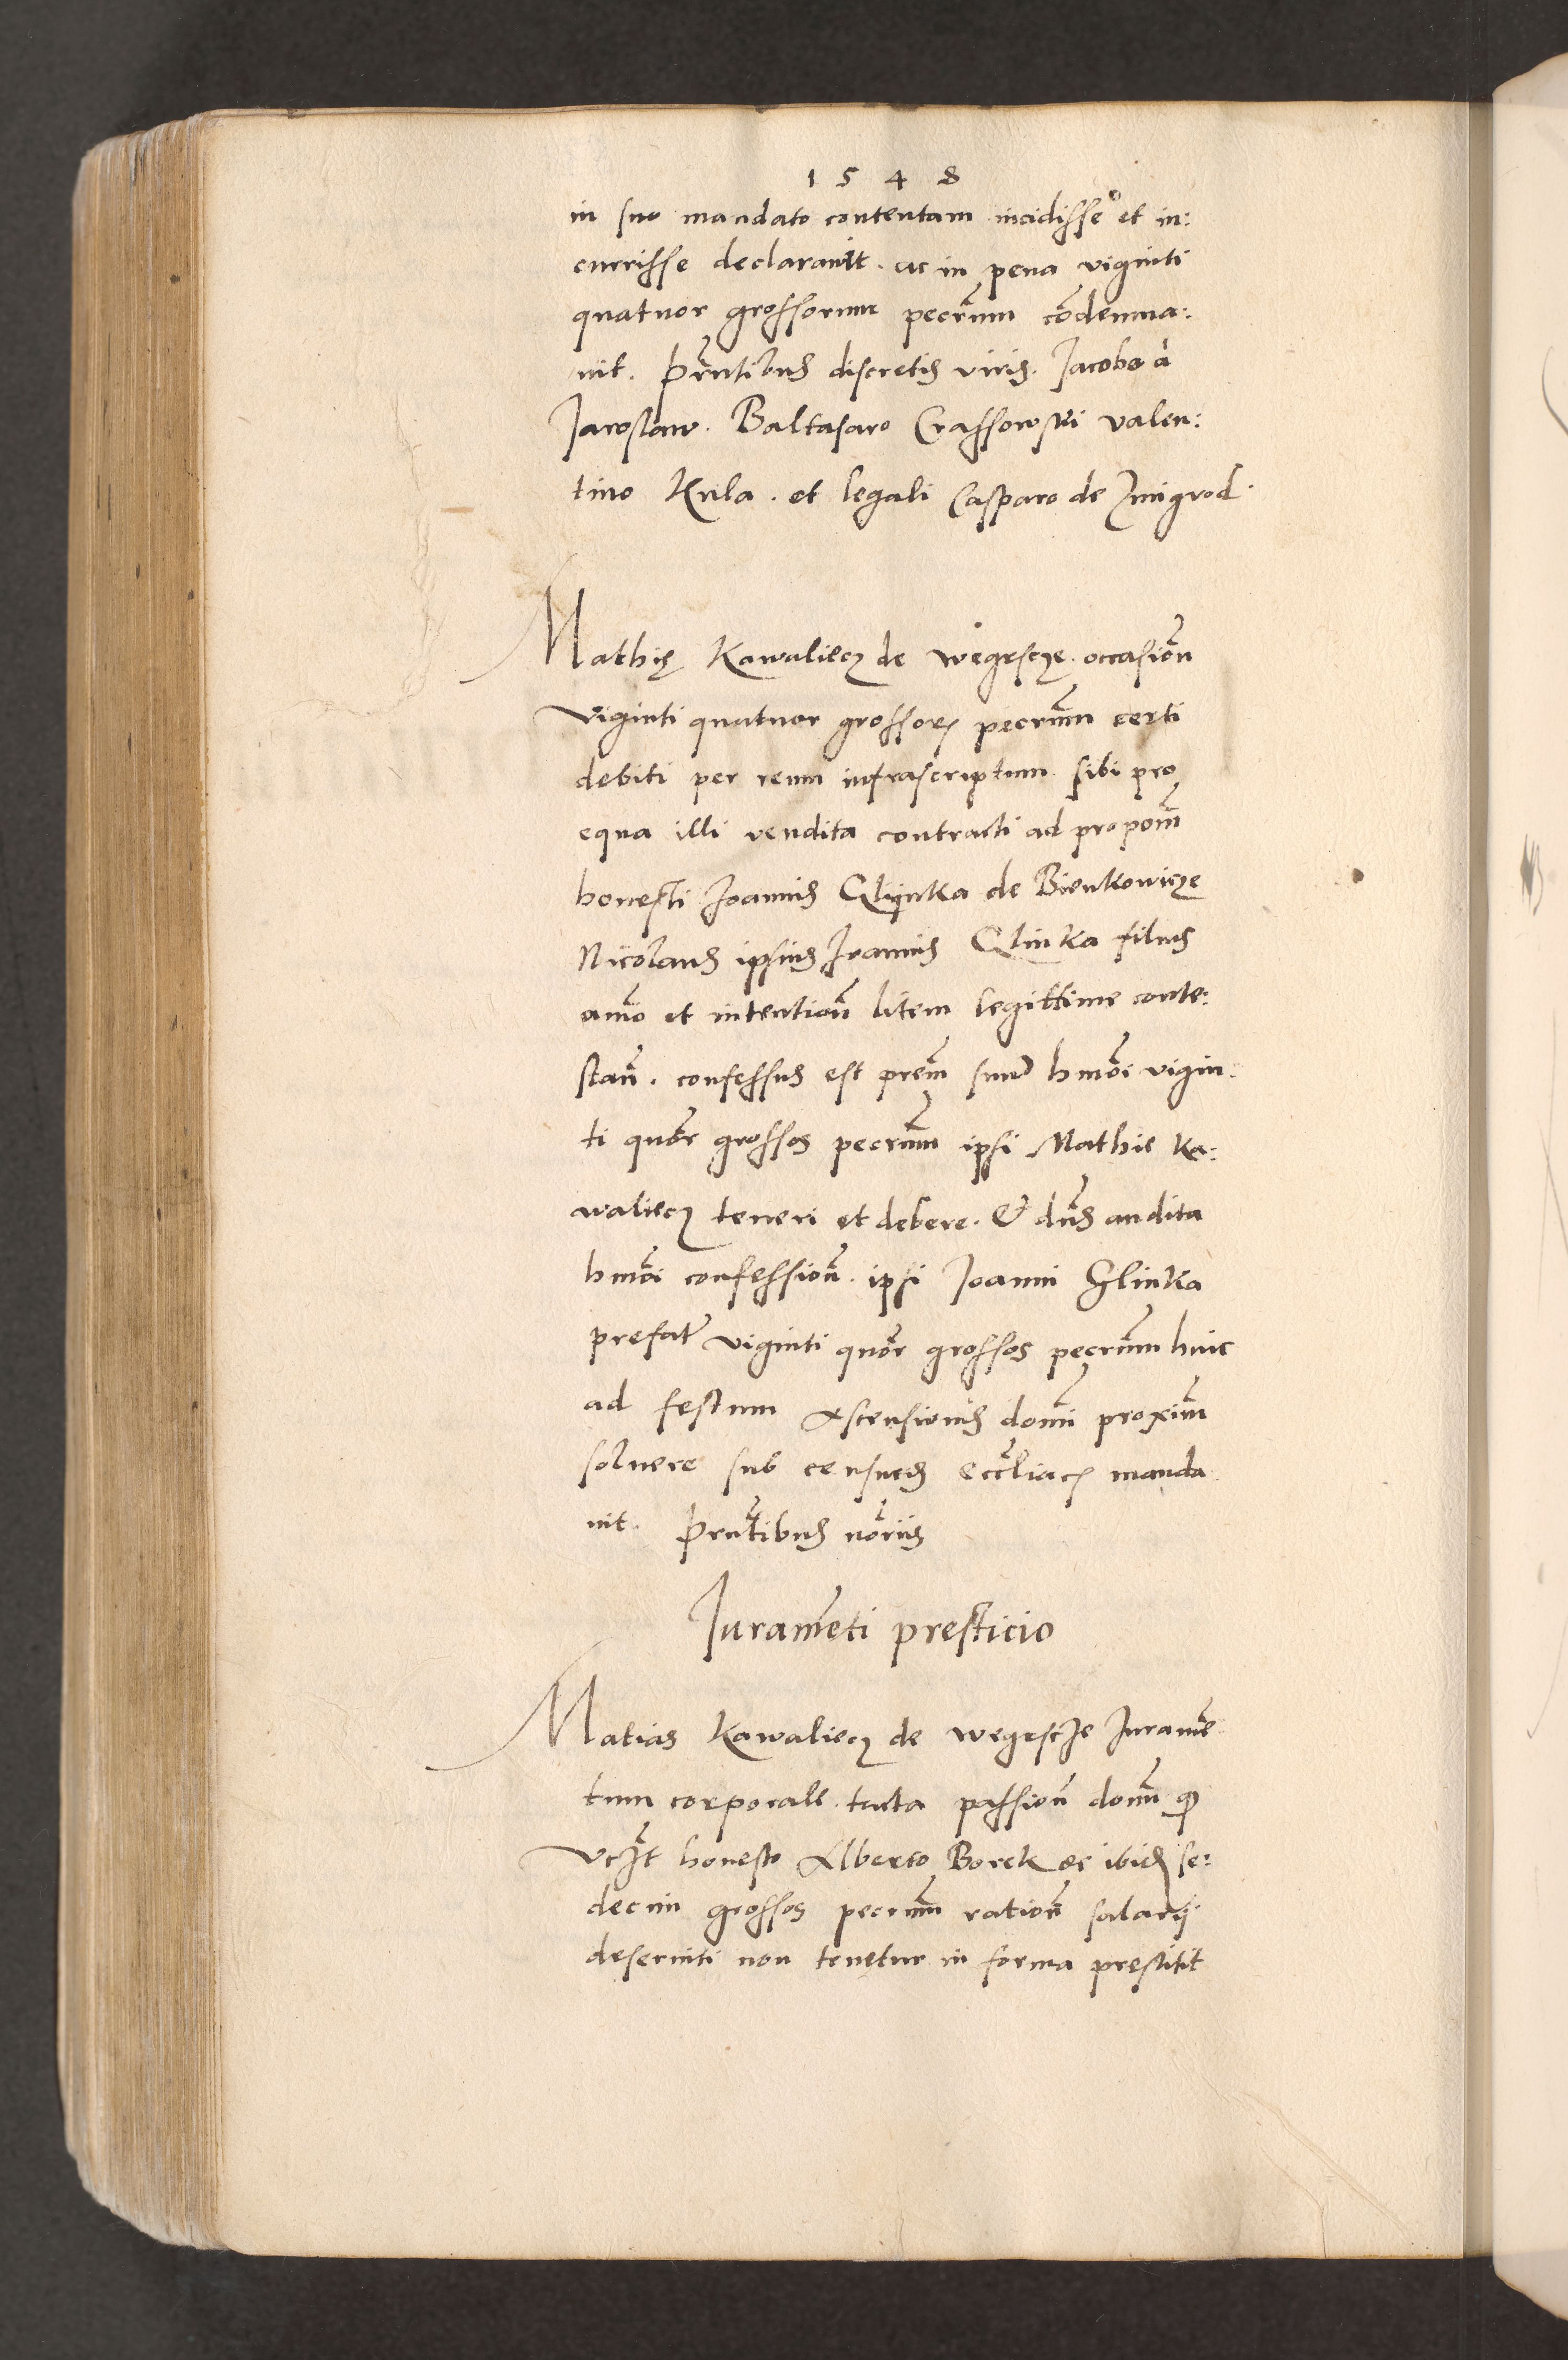 1548
in suo mandato contentam incidisse et in:
currisse declaravit. ac in pena viginti
quatuor grossorum pecrum̃ cõdemna:
uit. Prñtibus discretis viris. Jacobo a
Jaroslaw. Baltasaro Crassowski valen:
tino Kula. et legali Casparo de Zmigrod.
Mathię Kawaliecz de Węgrscze. occasioñ
Viginti quatuor grossorꝫ pecrum̃ certi
debiti per reum infrascriptum sibi pro
equa illi vendita contracti ad propoñm
honesti Joannis Glinka de Bienkowicze
Nicolaus ipsius Joannis Glinka filius
animo et intentioñ litem legittime conte:
stañ. confessus est preñm suum hmõi vigin:
ti quõr grossos pecrum̃ ipsi Mathie Ka:
waliecz teneri et debere. Et dñs audita
hmõi confessioñ. ipsi Joanni Glinka
prefat viginti quõr grossos pecrum̃ hinc
ad festum Ascensionis domĩ proxim̃
soluere sub censuris eccl̃iacꝫ manda
uit. Prñtibus uõriis
Juram̃eti presticio
Matias Kawaliecz de Wegrscze Jurame
tum corporale. tacta passioñ domĩ ꝙ
vcꝫt honesto Alberto Borek ec ibidꝫ se:
decim grossos pecrum̃ ratioñ salarij
deseruiti non tenetur in forma prestitit